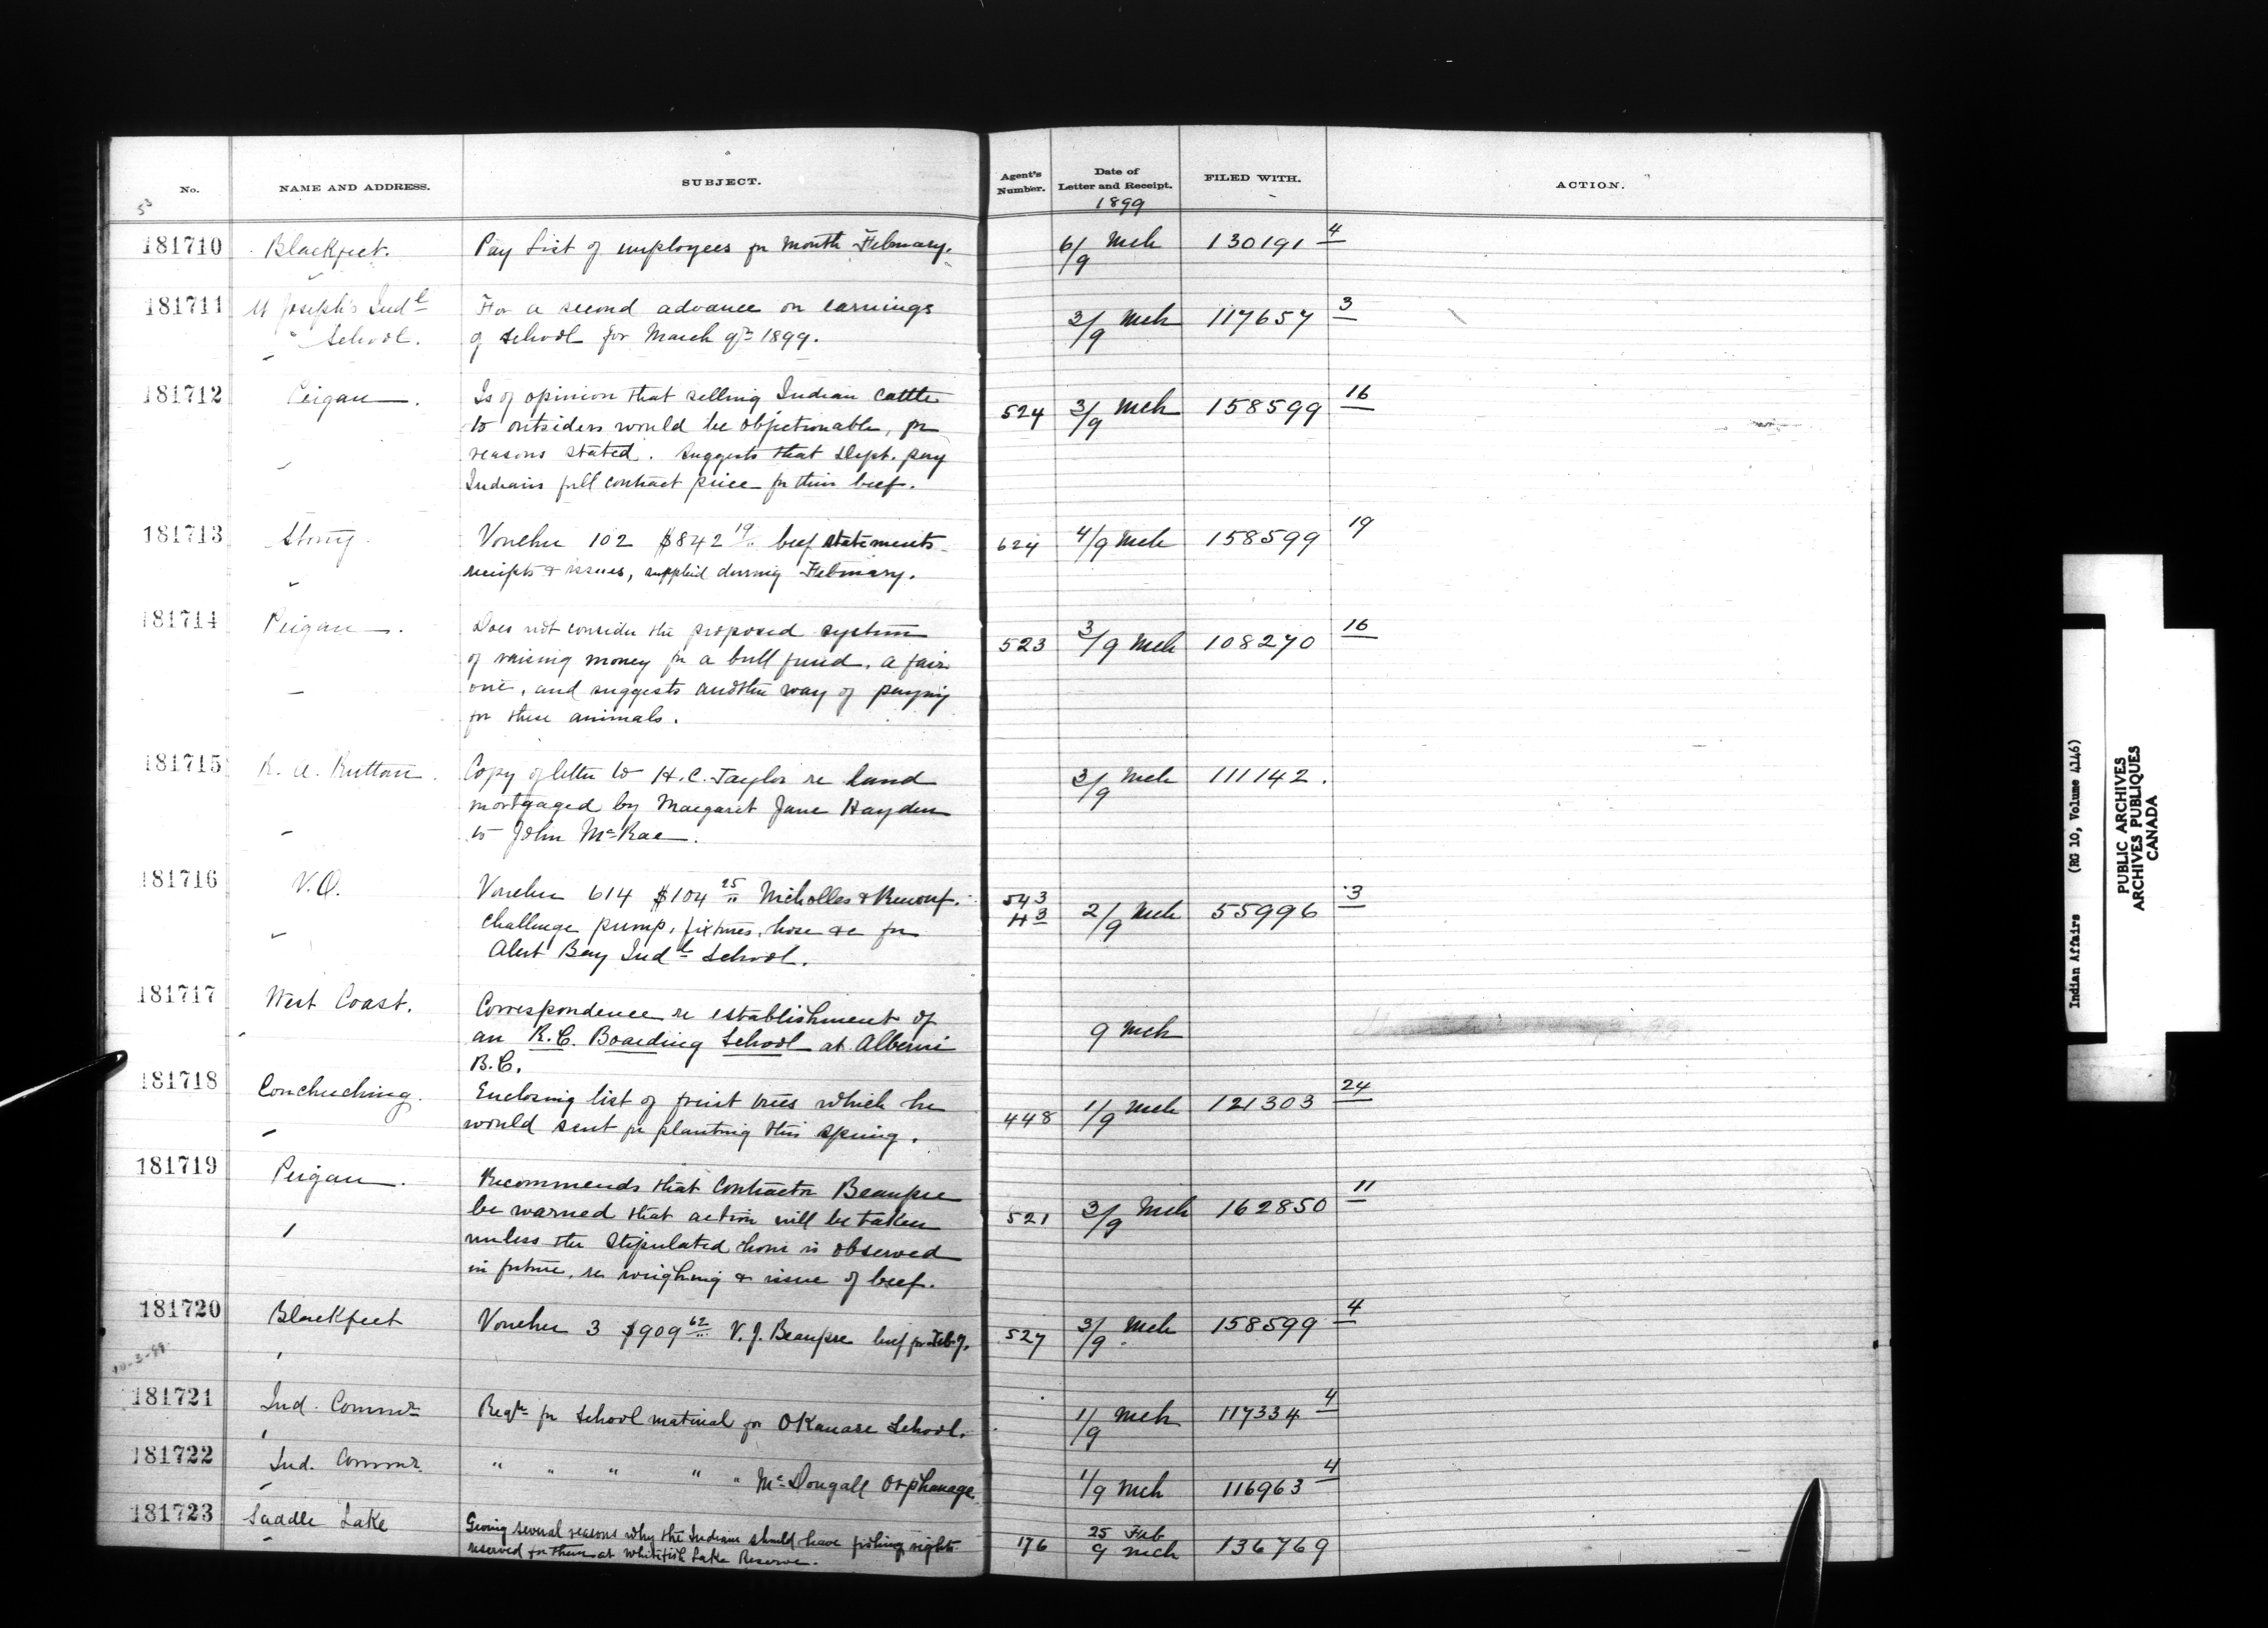 No. NAME AND ADDRESS. SUBJECT. Agent's Number. Date of Letter and Receipt. 1899 FILED WITH. ACTION.
53
181710 Blackfeet. Pay List of employees for month February. 6/9 Mch 130191 4
181711 St Joseph's Indl School. For a second advance on earnings
of school for March qr 1899. 3/9 Mch 117657 3
181712 Peigan. Is of opinion that selling Indian cattle
to outsiders would be objectionable, for
reasons stated. Suggests that Dept. pay
Indians full contract price for their beef. 524 3/9 Mch 158599 16
181713 Stony. Voucher 102 $842 19/.. beef statements
receipts & issues, supplied during February. 624 4/9 Mch 158599 19
181714 Peigan. Does not consider the proposed system
of raising money for a bull fund, a fair
one, and suggests another way of paying
for these animals. 523 3/9 Mch 108270 16
181715 R. A. Ruttan. Copy of letter to H.C. Taylor re land
mortgaged by Margaret Jane Hayden
to John McRae. 3/9 Mch 111142.
181716 V.O. Voucher 614 $104 25/.. Nicholles & Renouf.
Challenge pump, fixtures, hose &c for
Alert Bay Indl School. 543 H3 2/9 Mch 55996 3
181717 West Coast. Correspondence re establishment of
an R.C. Boarding School at Alberni
B.C. 9 Mch
181718 Couchiching. Enclosing list of fruit trees which he
would sent for planting this spring. 448 1/9 Mch 121303 24
181719 Peigan. Recommends that Contractor Beaupre
be warned that action will be taken
unless the stipulated hour is observed
in future, re weighing & issue of beef. 521 3/9 Mch 162850 11
181720 Blackfeet Voucher 3 $909 62/.. V. J. Beaupre beef for Feby. 527 3/9 Mch 158599 4
10-3-99
181721 Ind. Commr Reqn for School material for Okanase School. 1/9 Mch 117334 4
181722 Ind. Commr. " " " " " McDougall Orphanage. 1/9 Mch 116963 4
181723 Saddle Lake Giving several reasons why the Indians should have fishing rights
reserved for them at Whitefish Lake Reserve. 176 25 Feb 9 Mch 136769
Indian Affairs (RG 10, Volume 4146)
PUBLIC ARCHIVES
ARCHIVES PUBLIQUES
CANADA